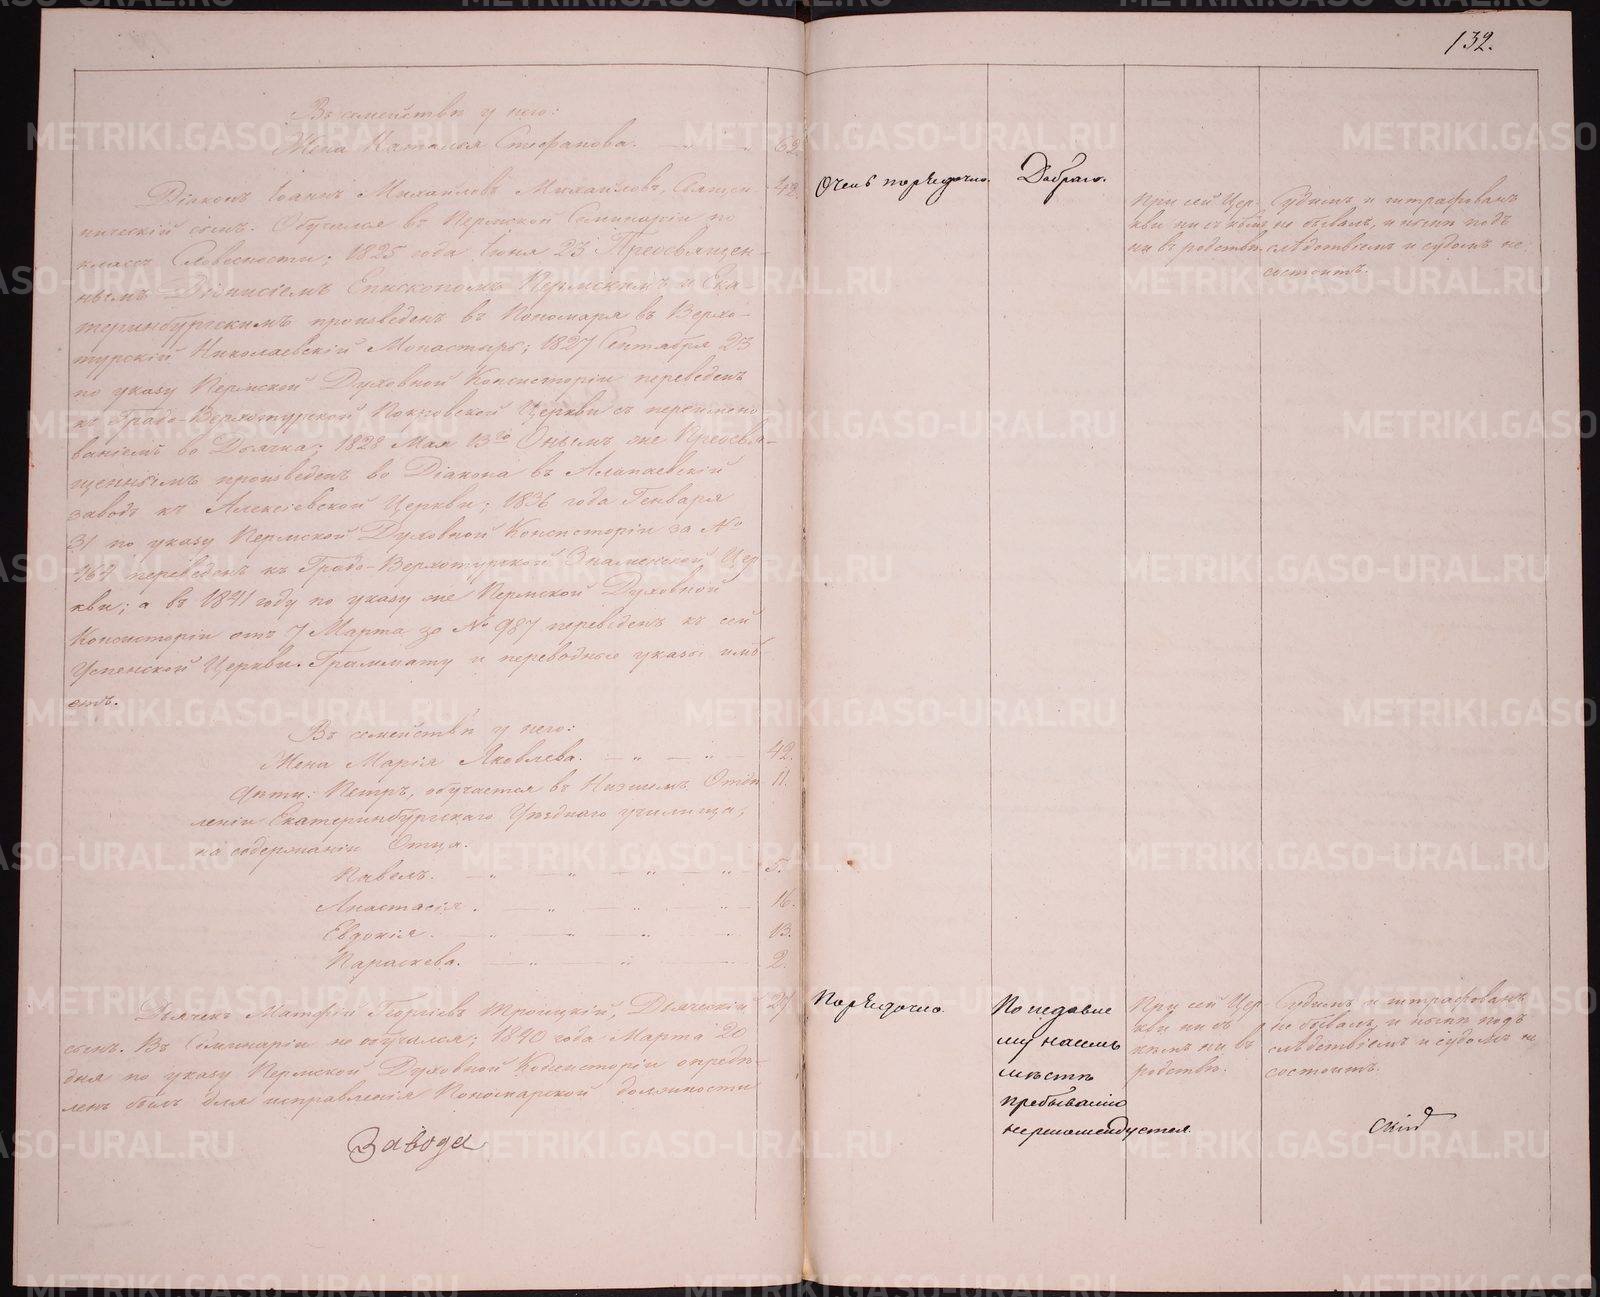 132.
Въ семействѣ у него:
Жена Наталья Стефанова. 62.
Діаконъ Іоаннъ Михайловъ Михайловъ, Священ-
ническій сынъ. Обучался въ Пермской Семинаріи по
классъ Словесности; 1825 года Іюня 23 Преосвящен-
нымъ Діонисіемъ Епископомъ Пермскимъ и Ека-
теринбургскимъ произведенъ въ Пономаря въ Верхо-
турскій Николаевскій Монастырь; 1827 Сентября 23
по указу Пермской Духовной Консисторіи переведенъ
къ Градо-Верхотурской Покровской Церкви съ переимено-
ваніемъ во Дьячка; 1828 Мая 13го Онымъ же Преосвя-
щеннымъ произведенъ во Діакона въ Алапаевскій
заводъ къ Алексіевской Церкви; 1836 года Генваря
31 по указу Пермской Духовной Консисторіи за №
464 переведенъ къ Градо-Верхотурской Знаменской Цер-
кви; а въ 1841 году по указу же Пермской Духовной
Консисторіи отъ 7 Марта за № 987 переведенъ къ сей
Успенской Церкви. Граммату и переводные указы имѣ-
етъ.
Въ семействѣ у него:
Жена Марія Яковлева. 42.
Дѣти: Петръ, обучается въ Низшемъ Отдѣ- 11.
леніи Екатеринбургскаго Уѣзднаго училища,
на содержаніи Отца.
Павелъ. 5.
Анастасія. 16.
Евдокія. 13.
Параскева. 2.
Дьячекъ Матфій Георгіевъ Троицкій, Дьяческій 27.
сынъ. Въ Семинаріи не обучался; 1840 года Марта 20
дня по указу Пермской Духовной Консисторіи опредѣ-
ленъ былъ для исправленія Пономарской должности
Завода
Очень порядочно.
Добраго.
При сей Цер-
кви ни съ кѣмъ
ни въ родствѣ.
Судимъ и штрафованъ
не бывалъ, и нынѣ подъ
слѣдствіемъ и судомъ не
состоитъ.
Порядочно.
По недавне
му на семъ
мѣстѣ
пребыванію
не рекомендуется.
При сей Цер-
кви ни съ
кѣмъ ни въ
родствѣ.
Судимъ и штрафованъ
не бывалъ, и нынѣ подъ
слѣдствіемъ и судомъ не
состоитъ.
METRIKI.GASO-URAL.RU